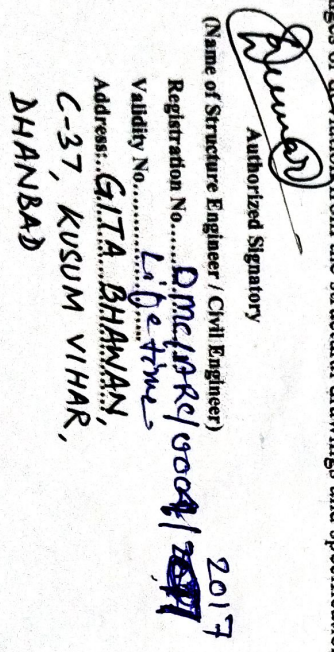 Authorized Signatory
(Name of Structure Engineer / Civil Engineer)
Registration No......DMC/ARC/0004/ 2017
Validity No...... Life time
Address:. GITA BHAWAN,
C-37, KUSUM VIHAR,
DHANBAD